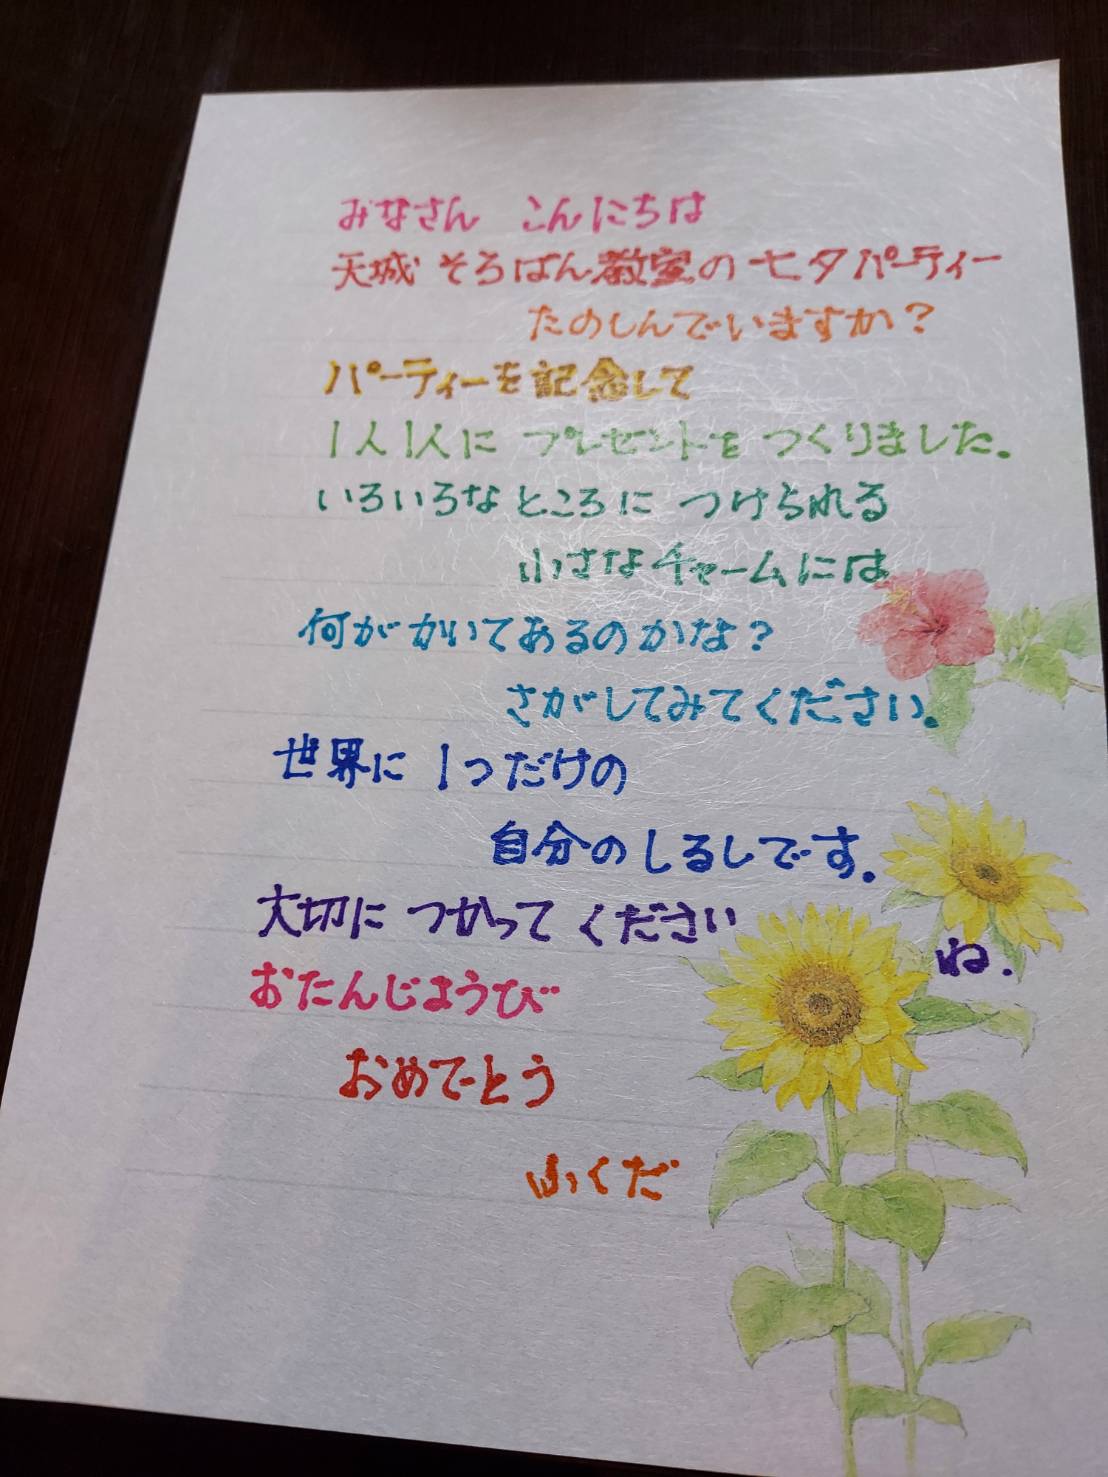 みなさん こんにちは
天城 そろばん教室の七夕パーティー
たのしんでいますか?
パーティーを記念して
1人1人に プレゼントを つくりました。
いろいろなところに つけられる
小さなチャームには
何が かいてあるのかな?
さがしてみてください。
世界に 1つだけの
自分のしるしです。
大切に つかって くださいね.
おたんじょうび
おめでとう
ふくだ